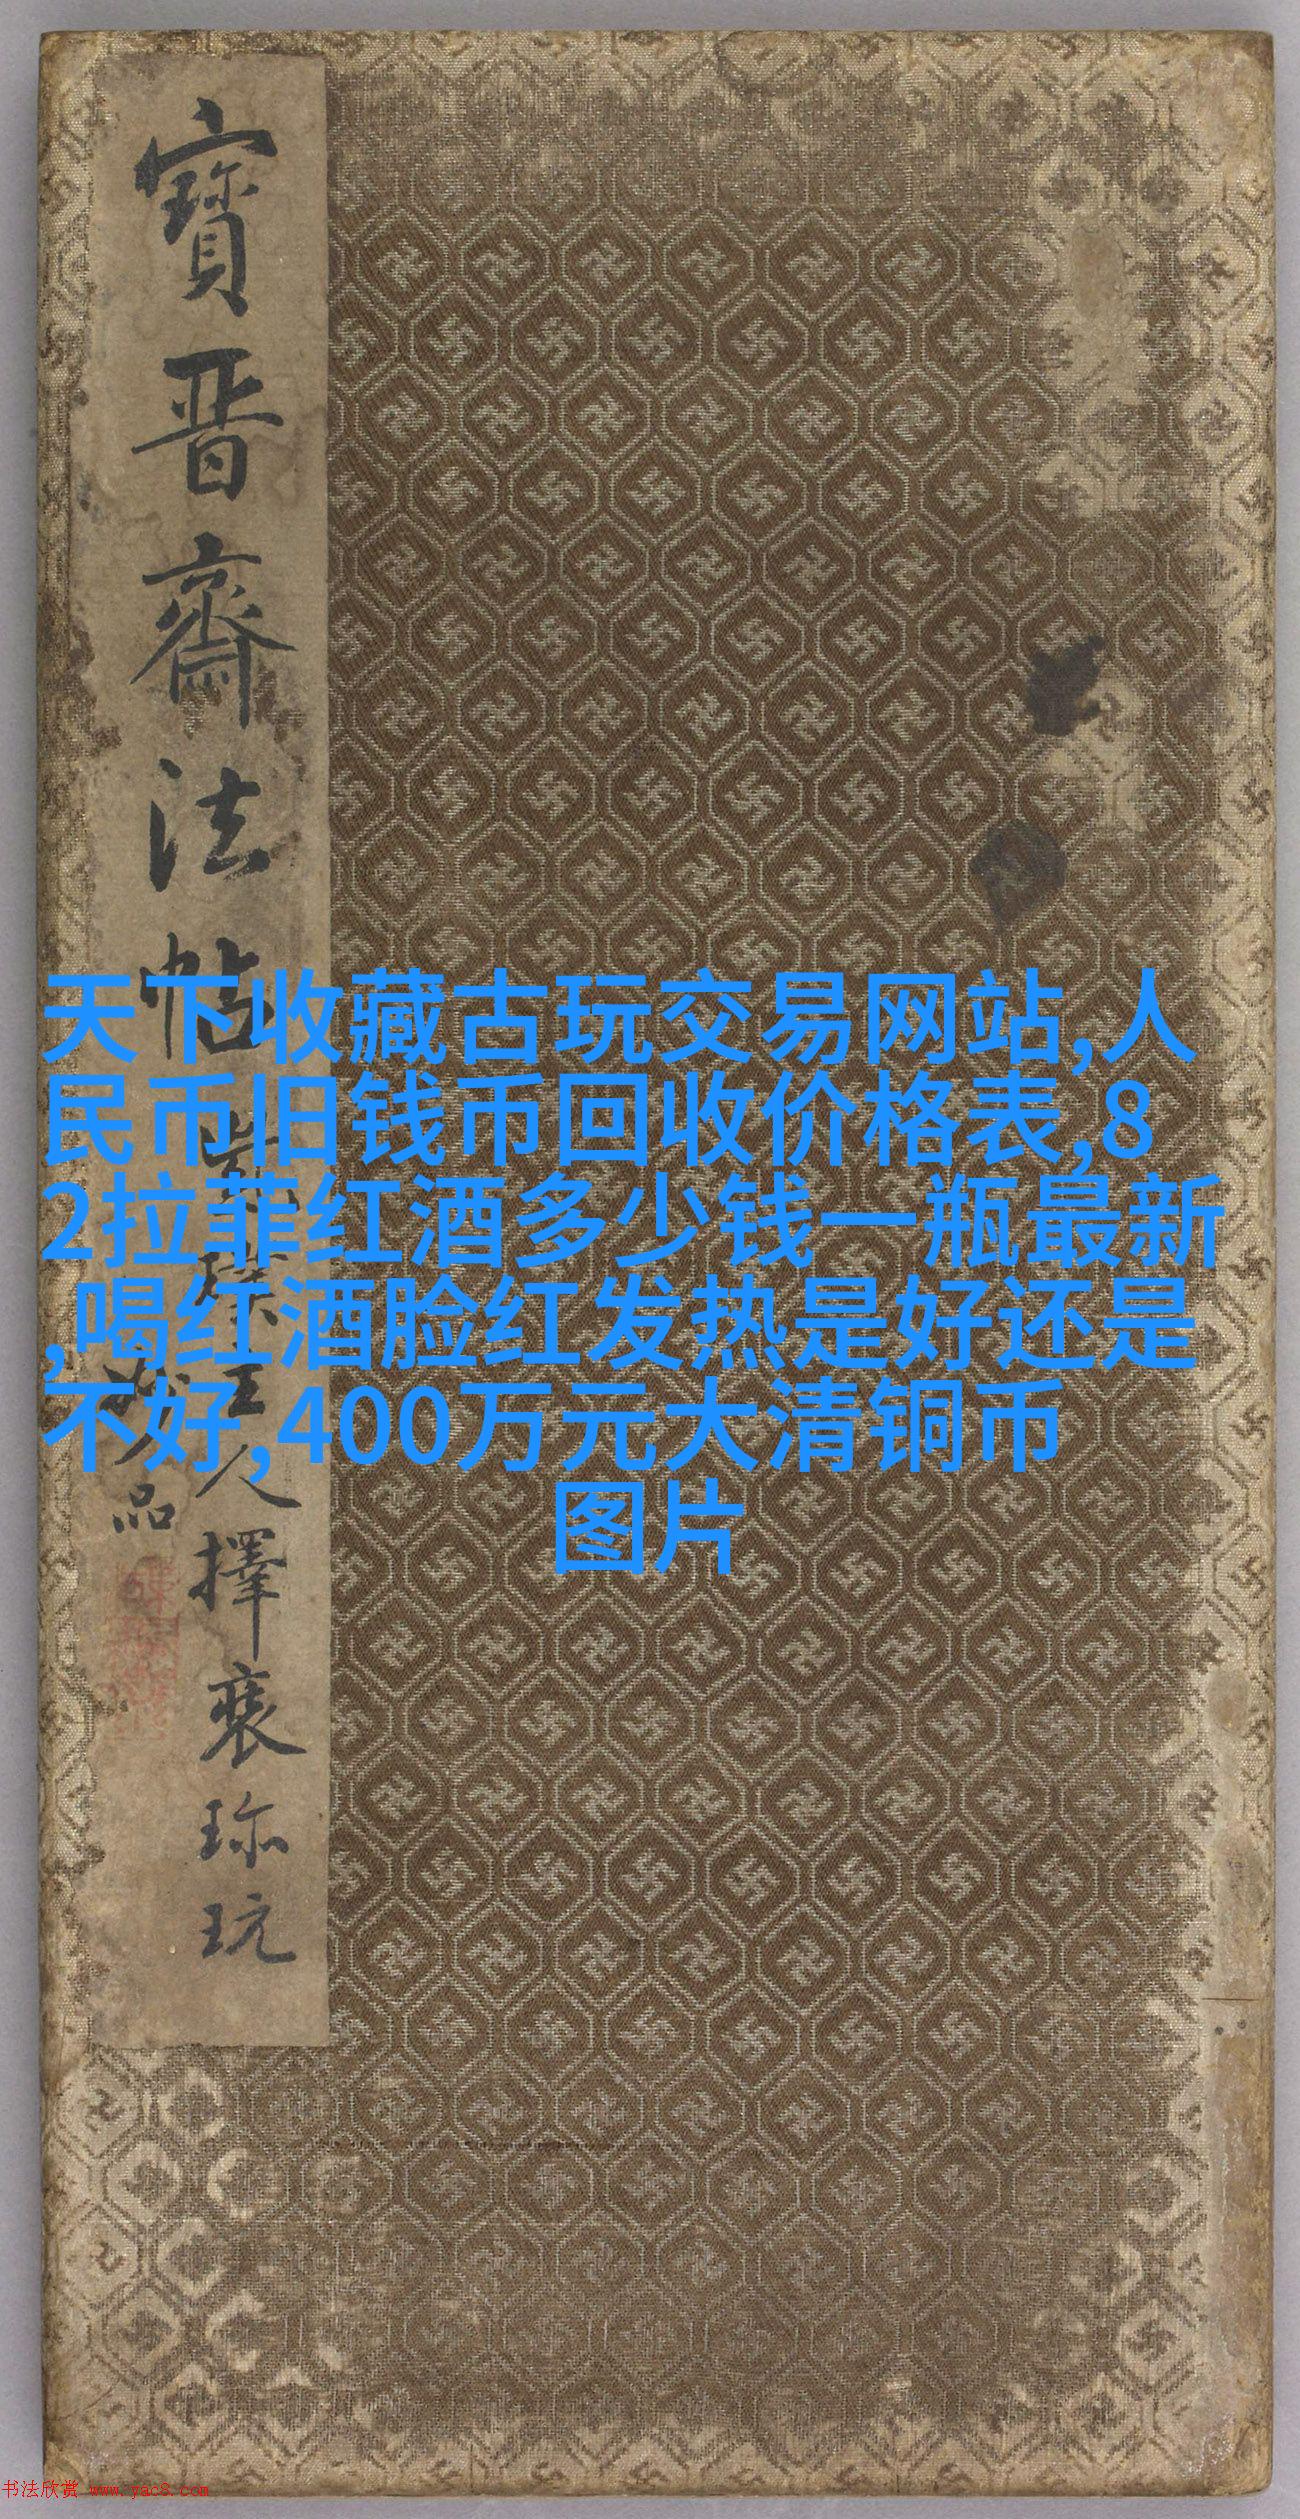 寳晋齋法帖
紫璘主人擇裒珎玩
妙品
天下收藏古玩交易网站,人
民币旧钱币回收价格表,8
2拉菲红酒多少钱一瓶最新
,喝红酒脸红发热是好还是
不好,400万元大清铜币
图片
书法欣赏 www.yac8.com